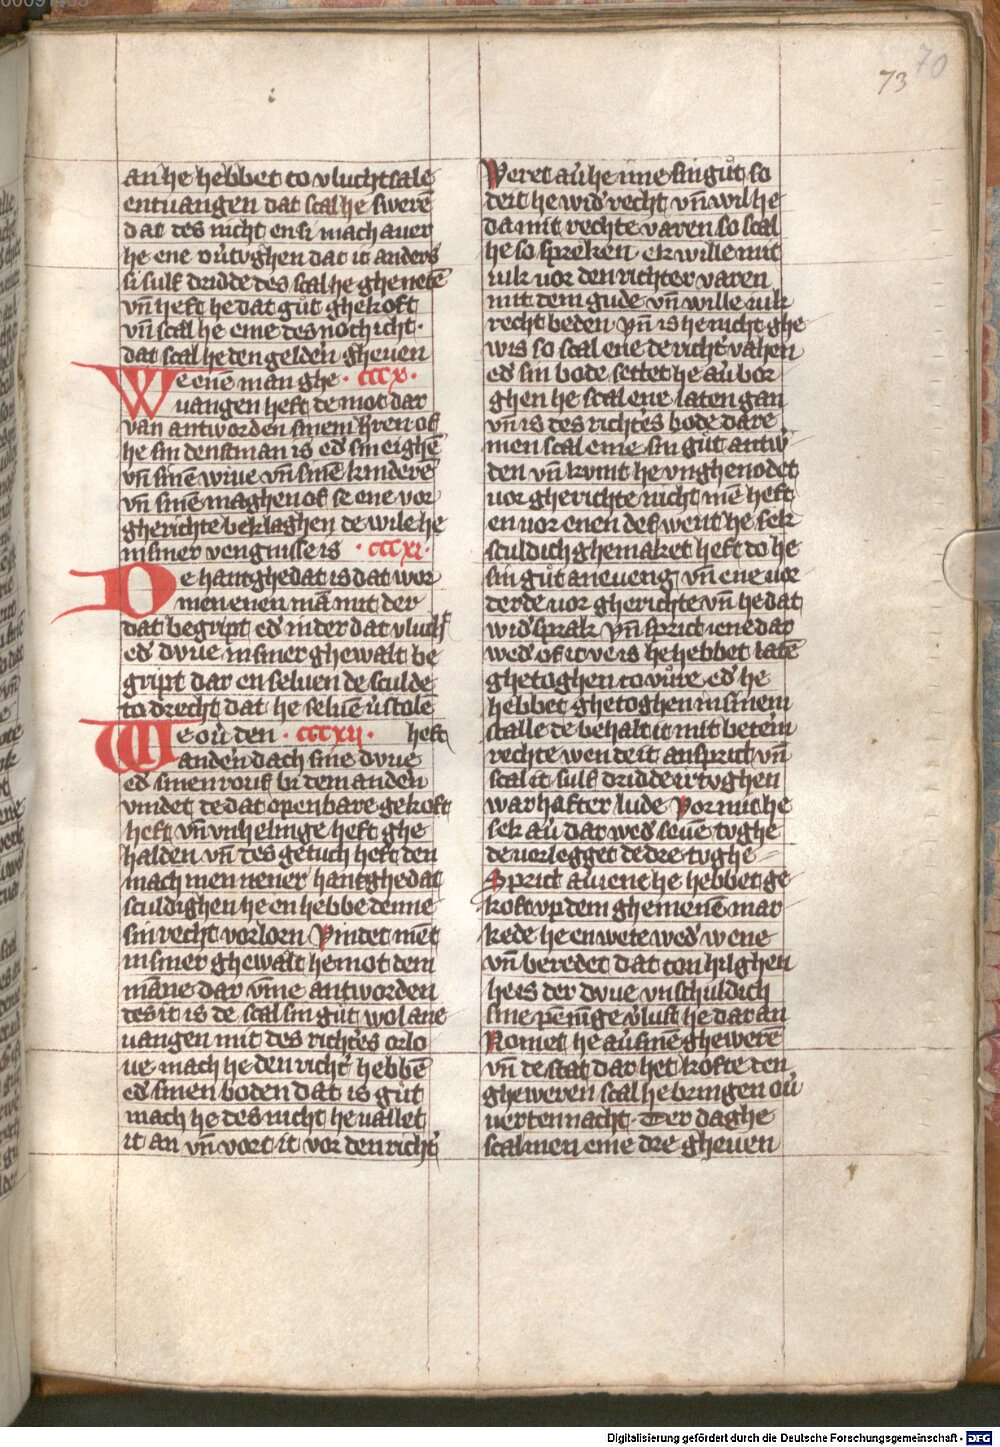 73
70
an he hebbet to vluchtsale
entuangen dat scal he swerē
dat des nicht en si mach auer
he ene ou̓tvghen dat it anders
si sulf dridde des scal he ghenetē
vn̄ heft he dat gůt ghekoft
vn̄ scal he eme des noch icht·
dat scal he den gelden gheuen
We enē man ghe · cccx·
uangen heft de mot dar
van antworden sinem hren of
he sin denstman is ed̓ sin eighē
vn̄ sinē wiue vn̄ sinē kinderē
vn̄ sinē maghen of se ene vor
gherichte beklaghen de wile he
in siner vengnisse is · cccxi·
De hantghedat is dat wor
men enen mā mit der
dat begript ed̓ in der dat vlucht
ed̓ dvue in siner ghewalt be
gript dar en seluen de sculde
to drecht dat he seluē v̓stolē
We ou̓ den · cccxii· heft
anden dach sine dvue
ed̓ sinen rouf bi dem anden
vindet de dat openbare gekoft
heft vn̄ vnhelinge heft ghe
halden vn̄ des getuch heft den
mach men nener hantghedat
sculdighen he en hebbe denne
sin recht vorlorn Vindet mēt
in siner ghewalt he mot dem
māne dar vm̄e antworden
des it is de scal sin gůt wol ane
uangen mit des richt̓es orlo
ue mach he den richt̓ hebbē
ed̓ sinen boden dat is gůt
mach he des nicht he uallet
it an vn̄ vort it vor den richt̓
Weret au̓ he ime sin gůt so
deit he wid̓ recht vn̄ wil he
da mit rechte varen so scal
he so spreken ek wille mit
iuk uor den richter varen
mit dem gude vn̄ wille iuk
recht beden vn̄ is he nicht ghe
wis so scal ene de richt̓ vahen
ed̓ sin bode settet he au̓ bor
ghen he scal ene laten gan
vn̄ is des richt̓es bode dare
men scal eme sin gůt antw̓
den vn̄ kvmt he vnghenodet
uor gherichte nicht mē heft
en uor enen def went he sek
sculdich ghemaket heft do he
sin gůt aneueng vn̄ ene uor
derde uor gherichte vn̄ he dat
wid̓sprak vn̄ sprict iene dar
wed̓ of it ve is he hebbet latē
ghetoghen to vůre ed̓ he
hebbet ghetoghen in sinem
stalle de behalt it mit beterm
rechte wen de it ansprict vn̄
scal it sulf dridde irtvghen
warhafter lude Vormiche
sek au̓ dar wed̓ seuē tvghe
de uorlegget de dre tvghe
Sprict au̓ iene he hebbet ge
koft vp dem ghemenē mar
kede he en wete wed̓ wene
vn̄ beredet dat ton hilghen
he is der dvue vnschuldich
sine pēnīge v̓lust he dar an
Nomet he au̓ sinē ghewerē
vn̄ de stat dar het kofte den
gheweren scal he bringen ou̓
uertennacht· Der daghe
scal men eme dre gheuen
Digitalisierung gefördert durch die Deutsche Forschungsgemeinschaft - DFG